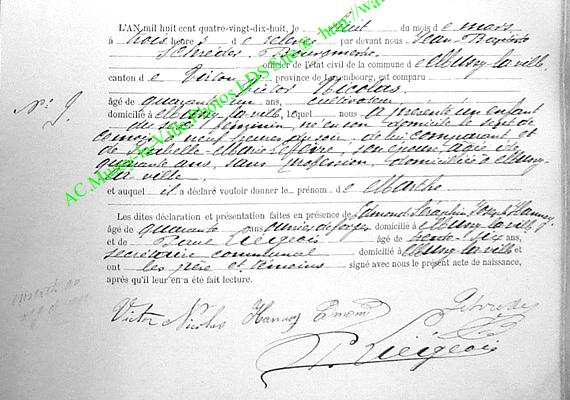 L'AN mil huit cent quatre-vingt-dix-huit, le huit du mois de mars
à trois heures de relevée par devant nous Jean Baptiste
Schneider Bourgmestre
officier de l'état civil de la commune de Mussy la ville
canton de Virton province de Luxembourg, est comparu
Victor Nicolas
âgé de quarante un ans, cultivateur
domicilié à Mussy la ville, lequel nous a présenté un enfant
du sexe féminin, né en son domicile le sept de
ce mois à neuf heures du soir, de lui comparant et
de Isabelle Marie Lefèvre, son épouse âgée de
quarante ans, sans profession, domiciliée à Mussy
la ville
et auquel il a déclaré vouloir donner le prénom de Marthe
Les dites déclaration et présentation faites en présence de Edmond Séraphin Joseph Hannoy
âgé de quarante ans domicilié à Mussy la ville
et de Paul Liégeois âgé de trente-six ans,
secrétaire communal domicilié à Mussy la ville
ont les père et témoins signé avec nous le présent acte de naissance,
après qu'il leur en a été fait lecture.
N° 9.
Victor Nicolas Hannoy Edmond
P Liégeois
AC Mussy-la-Ville Photos LDS Site de http://wa